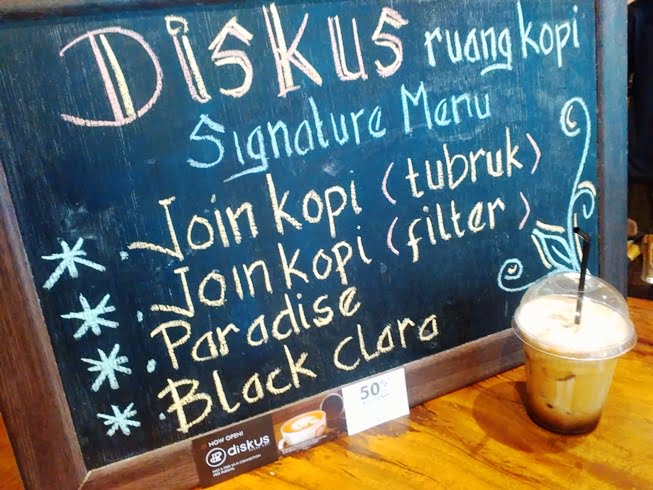 Diskus ruang kopi
Signature Menu
Join kopi (tubruk)
Join kopi (filter)
Paradise
Black Clara
NOW OPEN!
diskus
50%